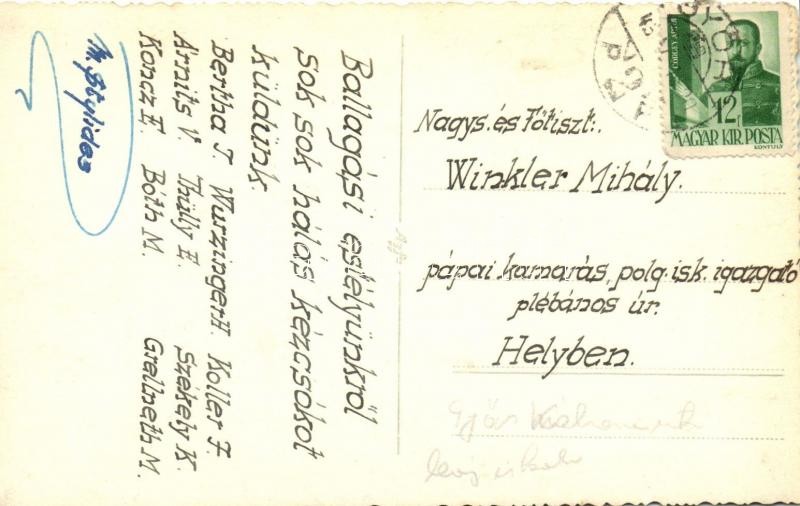 Ballagási estélyünkről
sok sok hálás kézcsókot
küldünk
Bertha J. Wurzinger H. Koller F.
Árnits V. Thülly E. Székely K.
Koncz E. Bóth M. Grallneth M.
GÖRGEY ARTUR
12f
MAGYAR KIR. POSTA
KONTULY
GYŐR
Nagys. és Főtiszt:.
Winkler Mihály.
pápai kamarás, polg. isk. igazgató
plébános úr.
Helyben.